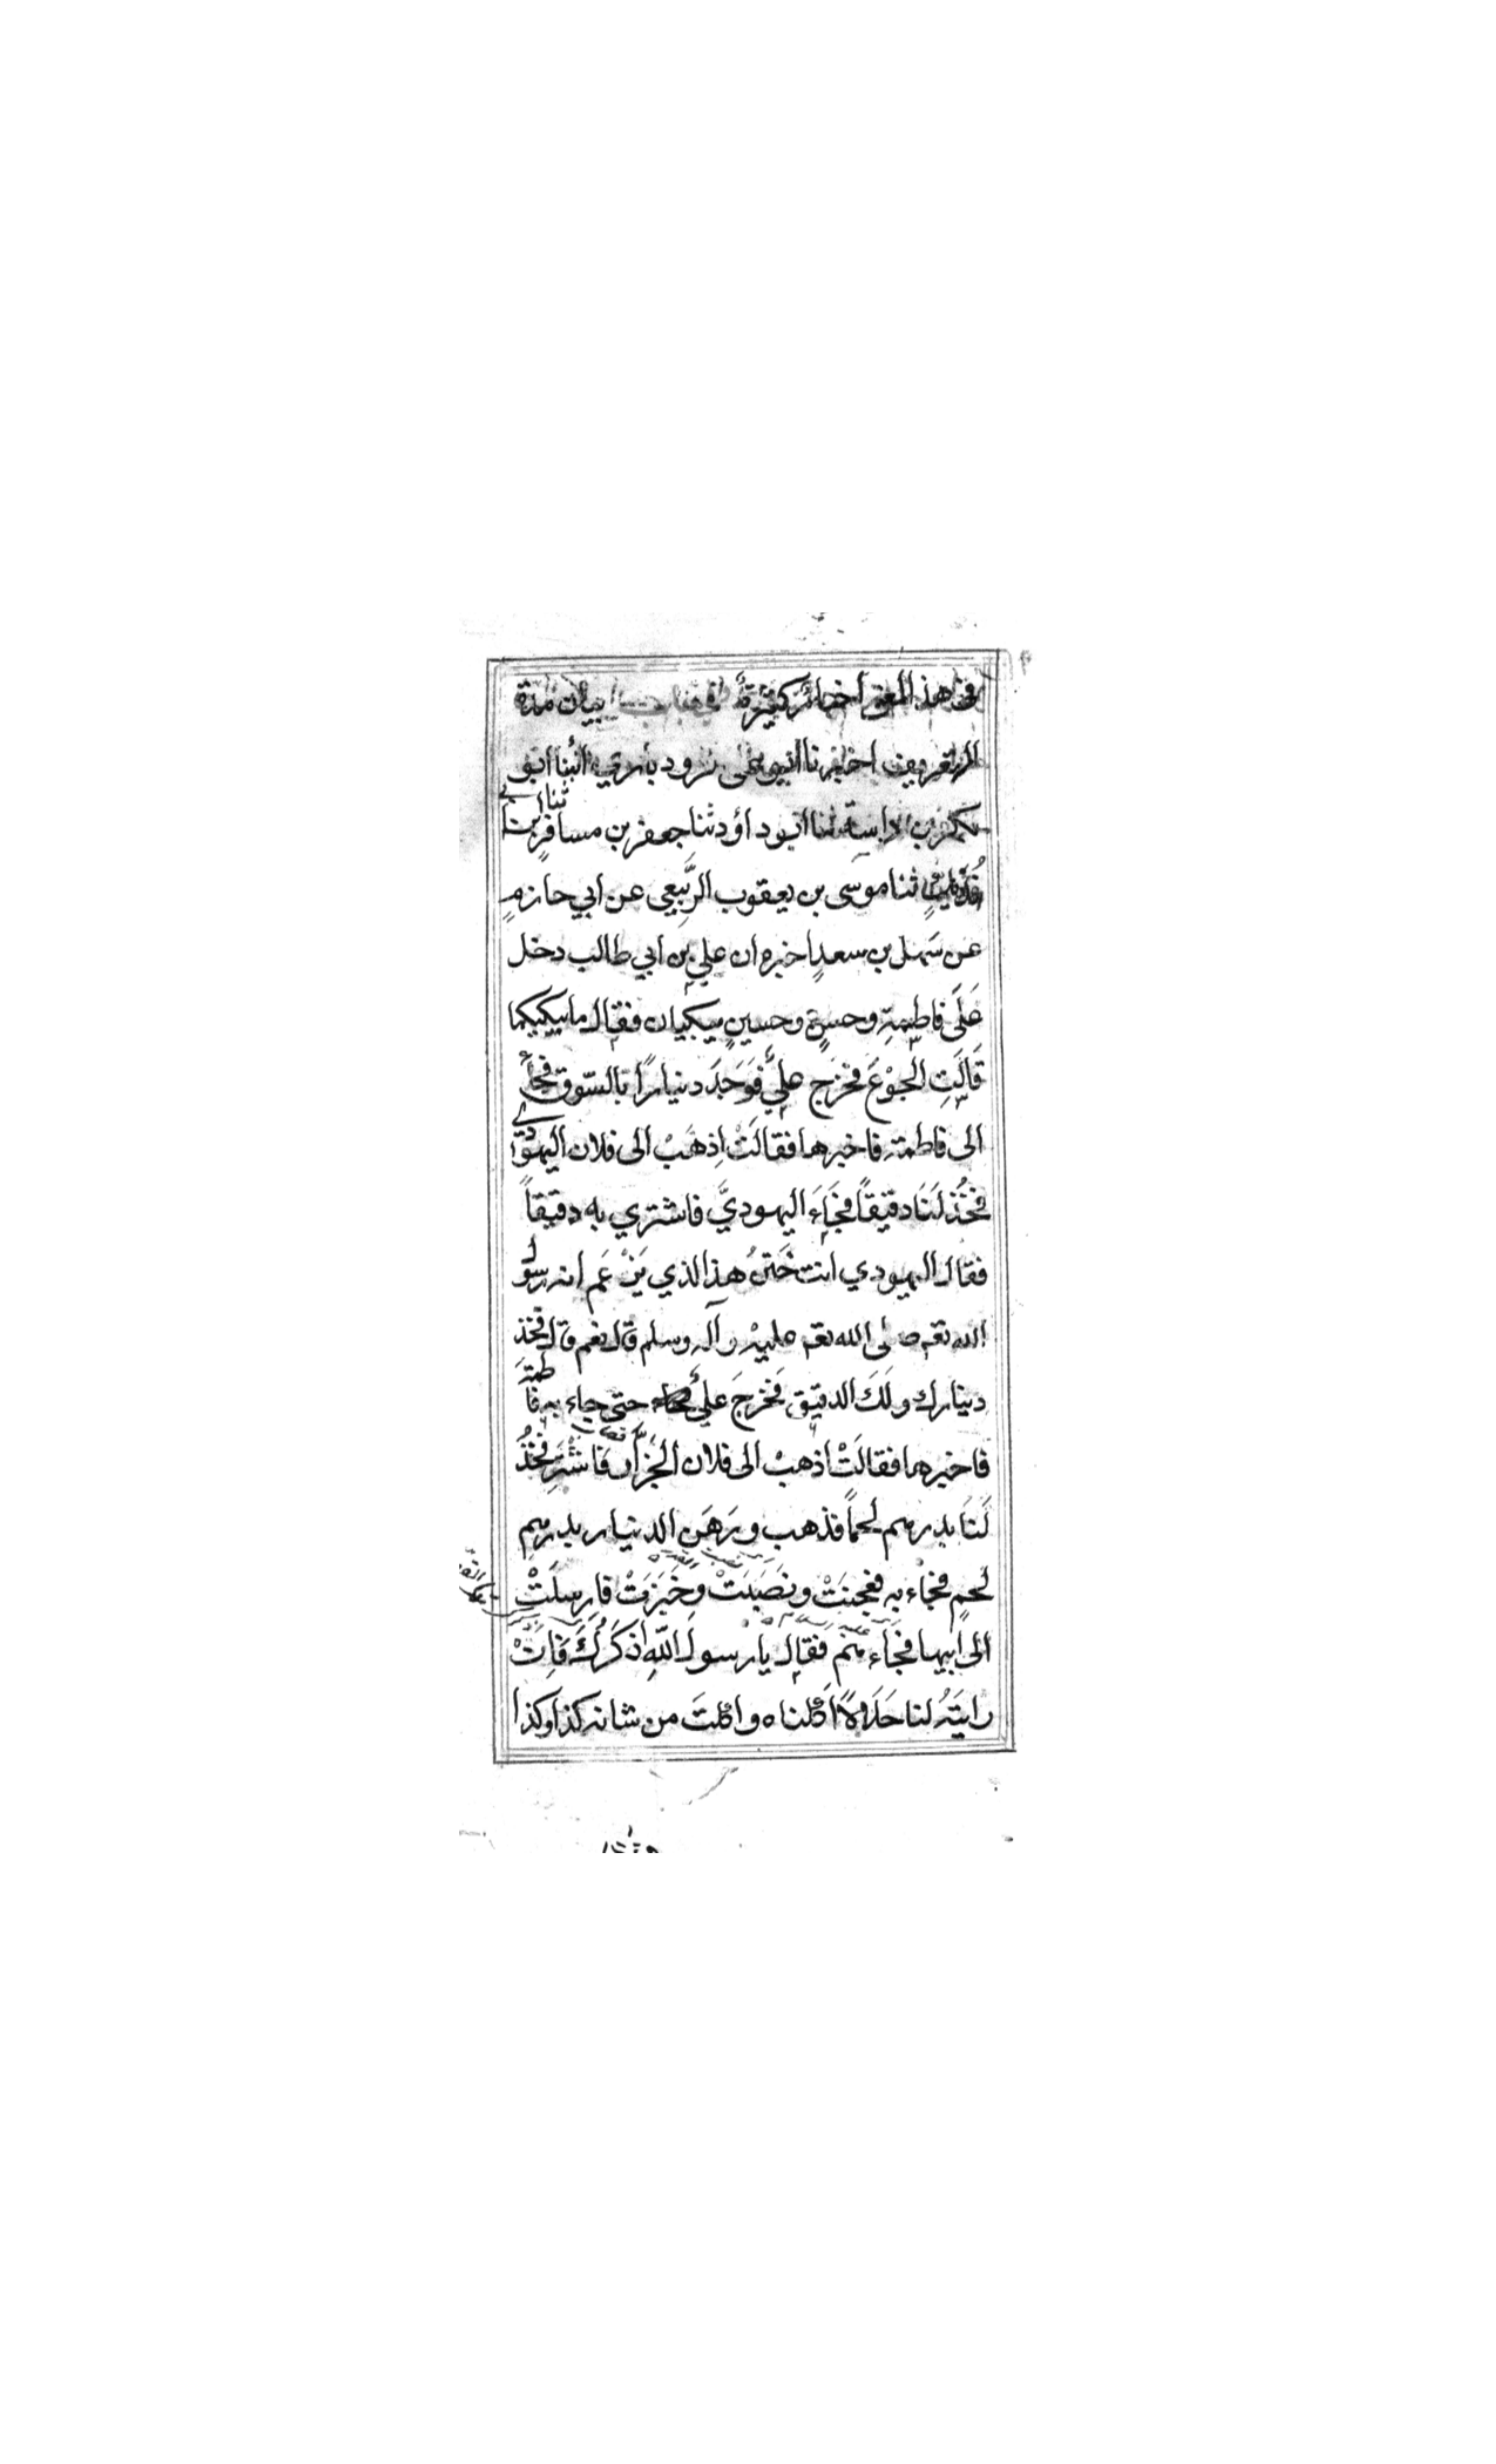 في هذا المعنى اخبار كثيرة بيان مدة
التعريف اخبرنا ابو علي رودباري انبنا ابو
بكر بن داسة ثنا ابو داؤد ثنا جعفر بن مسافر ثنا ابن ابي
فديك ثنا موسى بن يعقوب الرَّبعي عن ابي حازمٍ
عن سَهل بن سعدٍ اخبره ان علي بن ابي طالب دخل
عَلَى فاطمة وحسنٍ وحسينٍ يبكيان فقال ما يبكيكما
قَالَتِ الجوْعَ فخرَج عليٌّ فَوَجَدَ دنيارًا بالسّوق فجاَء
الى فاطمة فاخبرها فقالَتْ اِذهَبْ الى فلان اليهودي
فخُذ لَنَا دقيقاً فجَاءَ اليهوديَّ فاشتري به دقيقاً
فقال اليهودي انت ختنُ هذا الذي يَزْعَم انه رسول
الله تعـ صلى الله تعـ عليه وآله وسلم قال نعم قال فخذ
دينارك ولَكَ الدقيق فخرجَ عليٌّ حتى جاء به فاطمةَ
فاخبرها فقالَتْ اذهبْ الى فلان الجزَّار فخُذْ
لَنَا بدرهم لحماً فذهب ورَهَن الدنيار بدرهم
لحمٍ فجاء به فعجنَتْ ونصَبَتْ وَخَبَزَتْ فارسلَتْ
الى ابيها فجَاءهم فقال يا رسول اللهِ اذكرُ لَكَ فَاِنْ
رايتَه لنا حَلَالًا اكلناه واكلتَ من شانه كذا وكذا